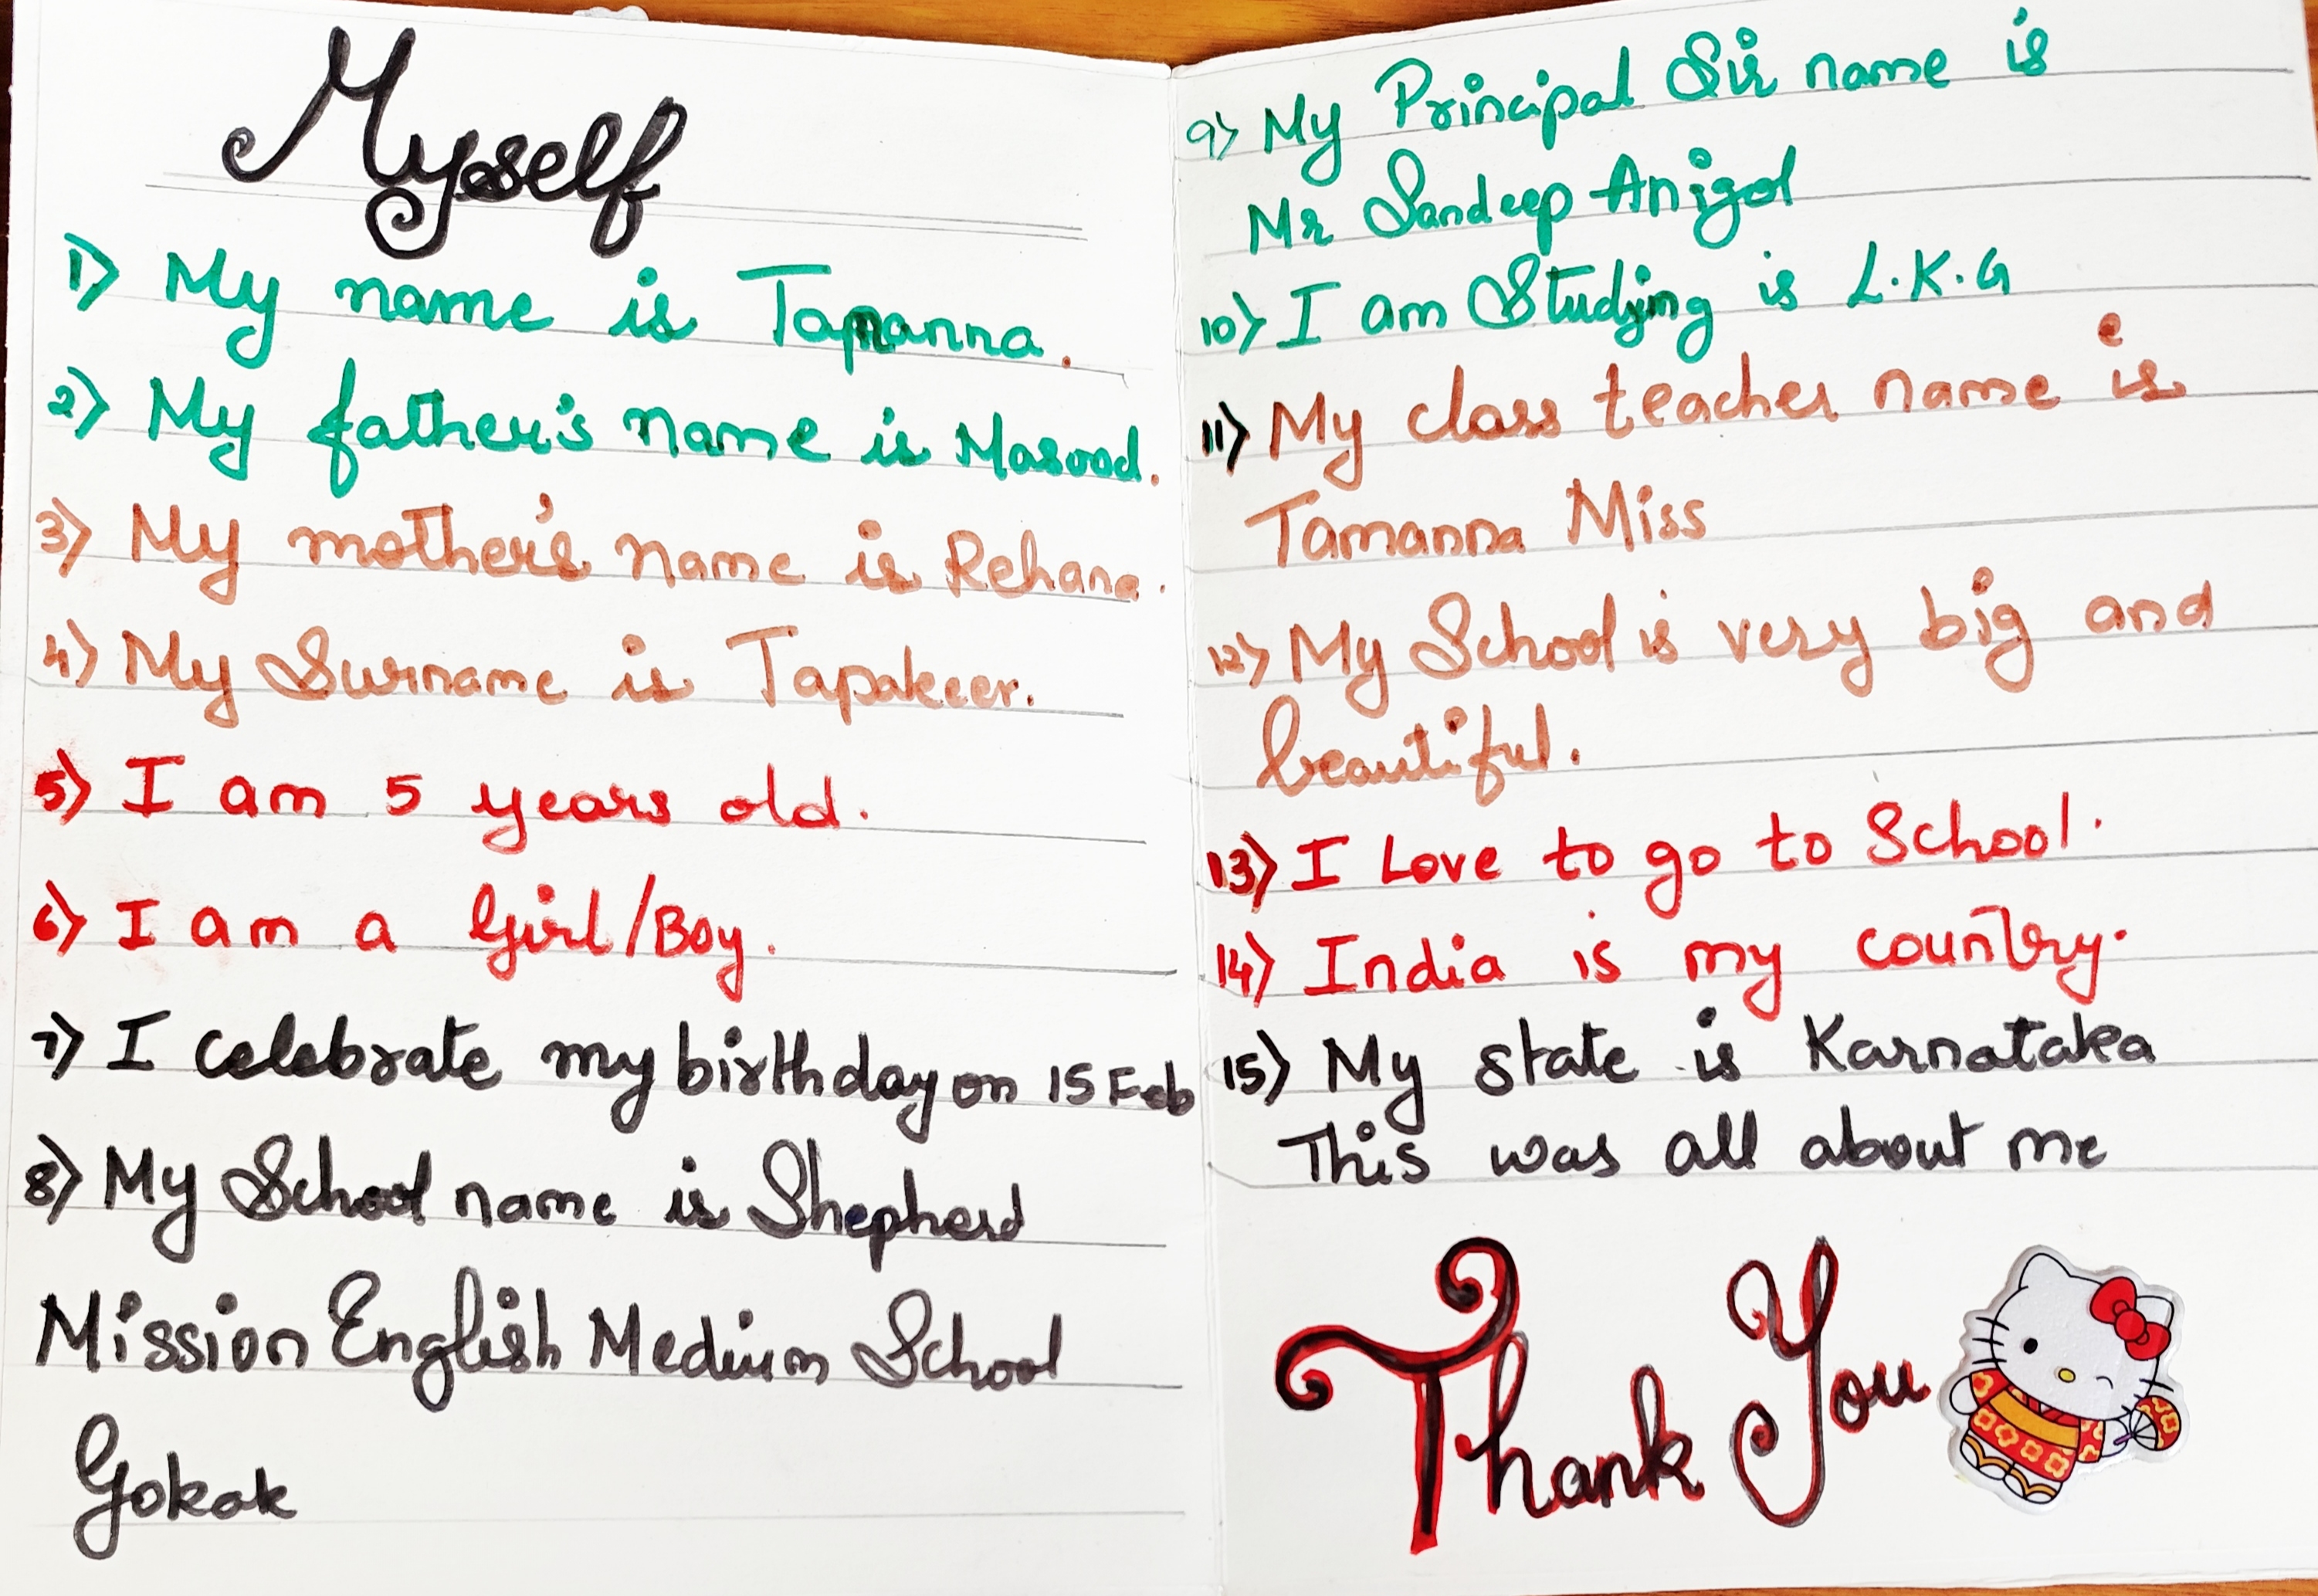 Myself
1) My name is Tamanna.
2) My father's name is Masood.
3) My mother's name is Rehana.
4) My Surname is Tapakeer.
5) I am 5 years old.
6) I am a Girl/Boy.
7) I celebrate my birthday on 15 Feb
8) My School name is Shepherd
Mission English Medium School
Gokak
9) My Principal Sir name is
Mr Sandeep Anigol
10) I am Studying is L.K.G
11) My class teacher name is
Tamanna Miss
12) My School is very big and
beautiful.
13) I Love to go to School.
14) India is my country.
15) My state is Karnataka
This was all about me
Thank You